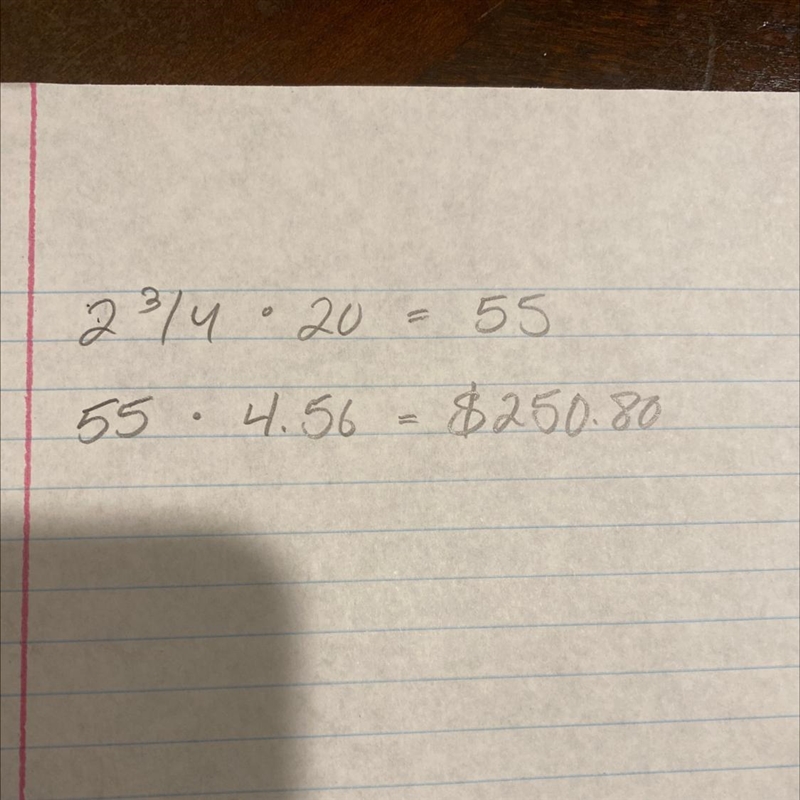 2 3/4 · 20 = 55
55 · 4.56 = $250.80